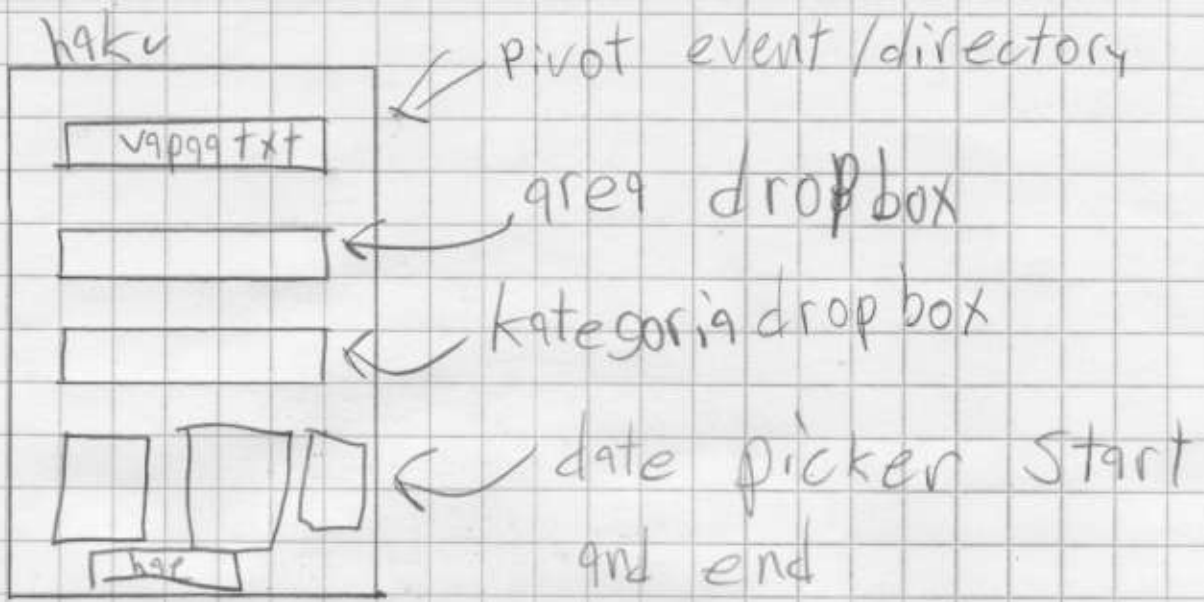 haku
pivot event/directory
vapaa txt
area dropbox
kategoria dropbox
date picker start
and end
hae